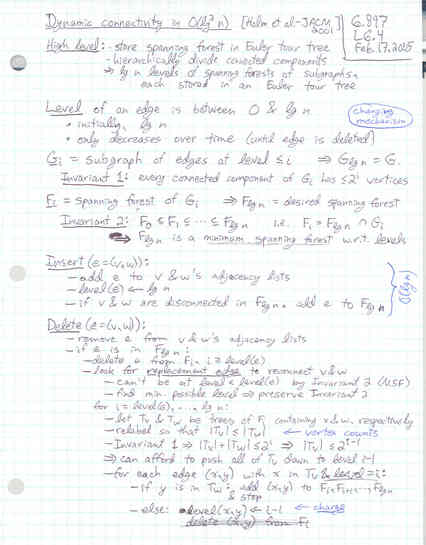 Dynamic connectivity in O(lg² n) [Holm et al - JACM 2001]
6.897
L6.4
Feb. 17, 2005
High level: - store spanning forest in Euler tour tree
- hierarchically divide connected components
⇒ lg n levels of spanning forests of subgraphs,
each stored in an Euler tour tree
Level of an edge is between 0 & lg n
charging mechanism
• initially, lg n
• only decreases over time (until edge is deleted)
Gi = subgraph of edges at level ≤ i ⇒ Glg n = G.
Invariant 1: every connected component of Gi has ≤ 2^i vertices
Fi = spanning forest of Gi ⇒ Flg n = desired spanning forest
Invariant 2: F0 ⊆ F1 ⊆ ... ⊆ Flg n i.e. Fi = Flg n ∩ Gi
⇒ Flg n is a minimum spanning forest w.r.t. levels
Insert(e=(v,w)):
- add e to v & w's adjacency lists
- level(e) ← lg n
- if v & w are disconnected in Flg n, add e to Flg n
O(lg n)
Delete(e=(v,w)):
- remove e from v & w's adjacency lists
- if e is in Flg n:
- delete e from Fi, i ≥ level(e)
- look for replacement edge to reconnect v & w
- can't be at level < level(e) by Invariant 2 (MSF)
- find min. possible level ⇒ preserve Invariant 2
for i = level(e), ..., lg n:
- let Tv & Tw be trees of Fi containing v & w, respectively
- relabel so that |Tv| ≤ |Tw| ← vertex counts
- Invariant 1 ⇒ |Tv|+|Tw| ≤ 2^i ⇒ |Tv| ≤ 2^(i-1)
⇒ can afford to push all of Tv down to level i-1
- for each edge (x,y) with x in Tv & level = i:
- if y is in Tw: add (x,y) to Fi, Fi+1, ..., Flg n
& stop
- else: level(x,y) ← i-1 ← charge
delete (x,y) from Fi